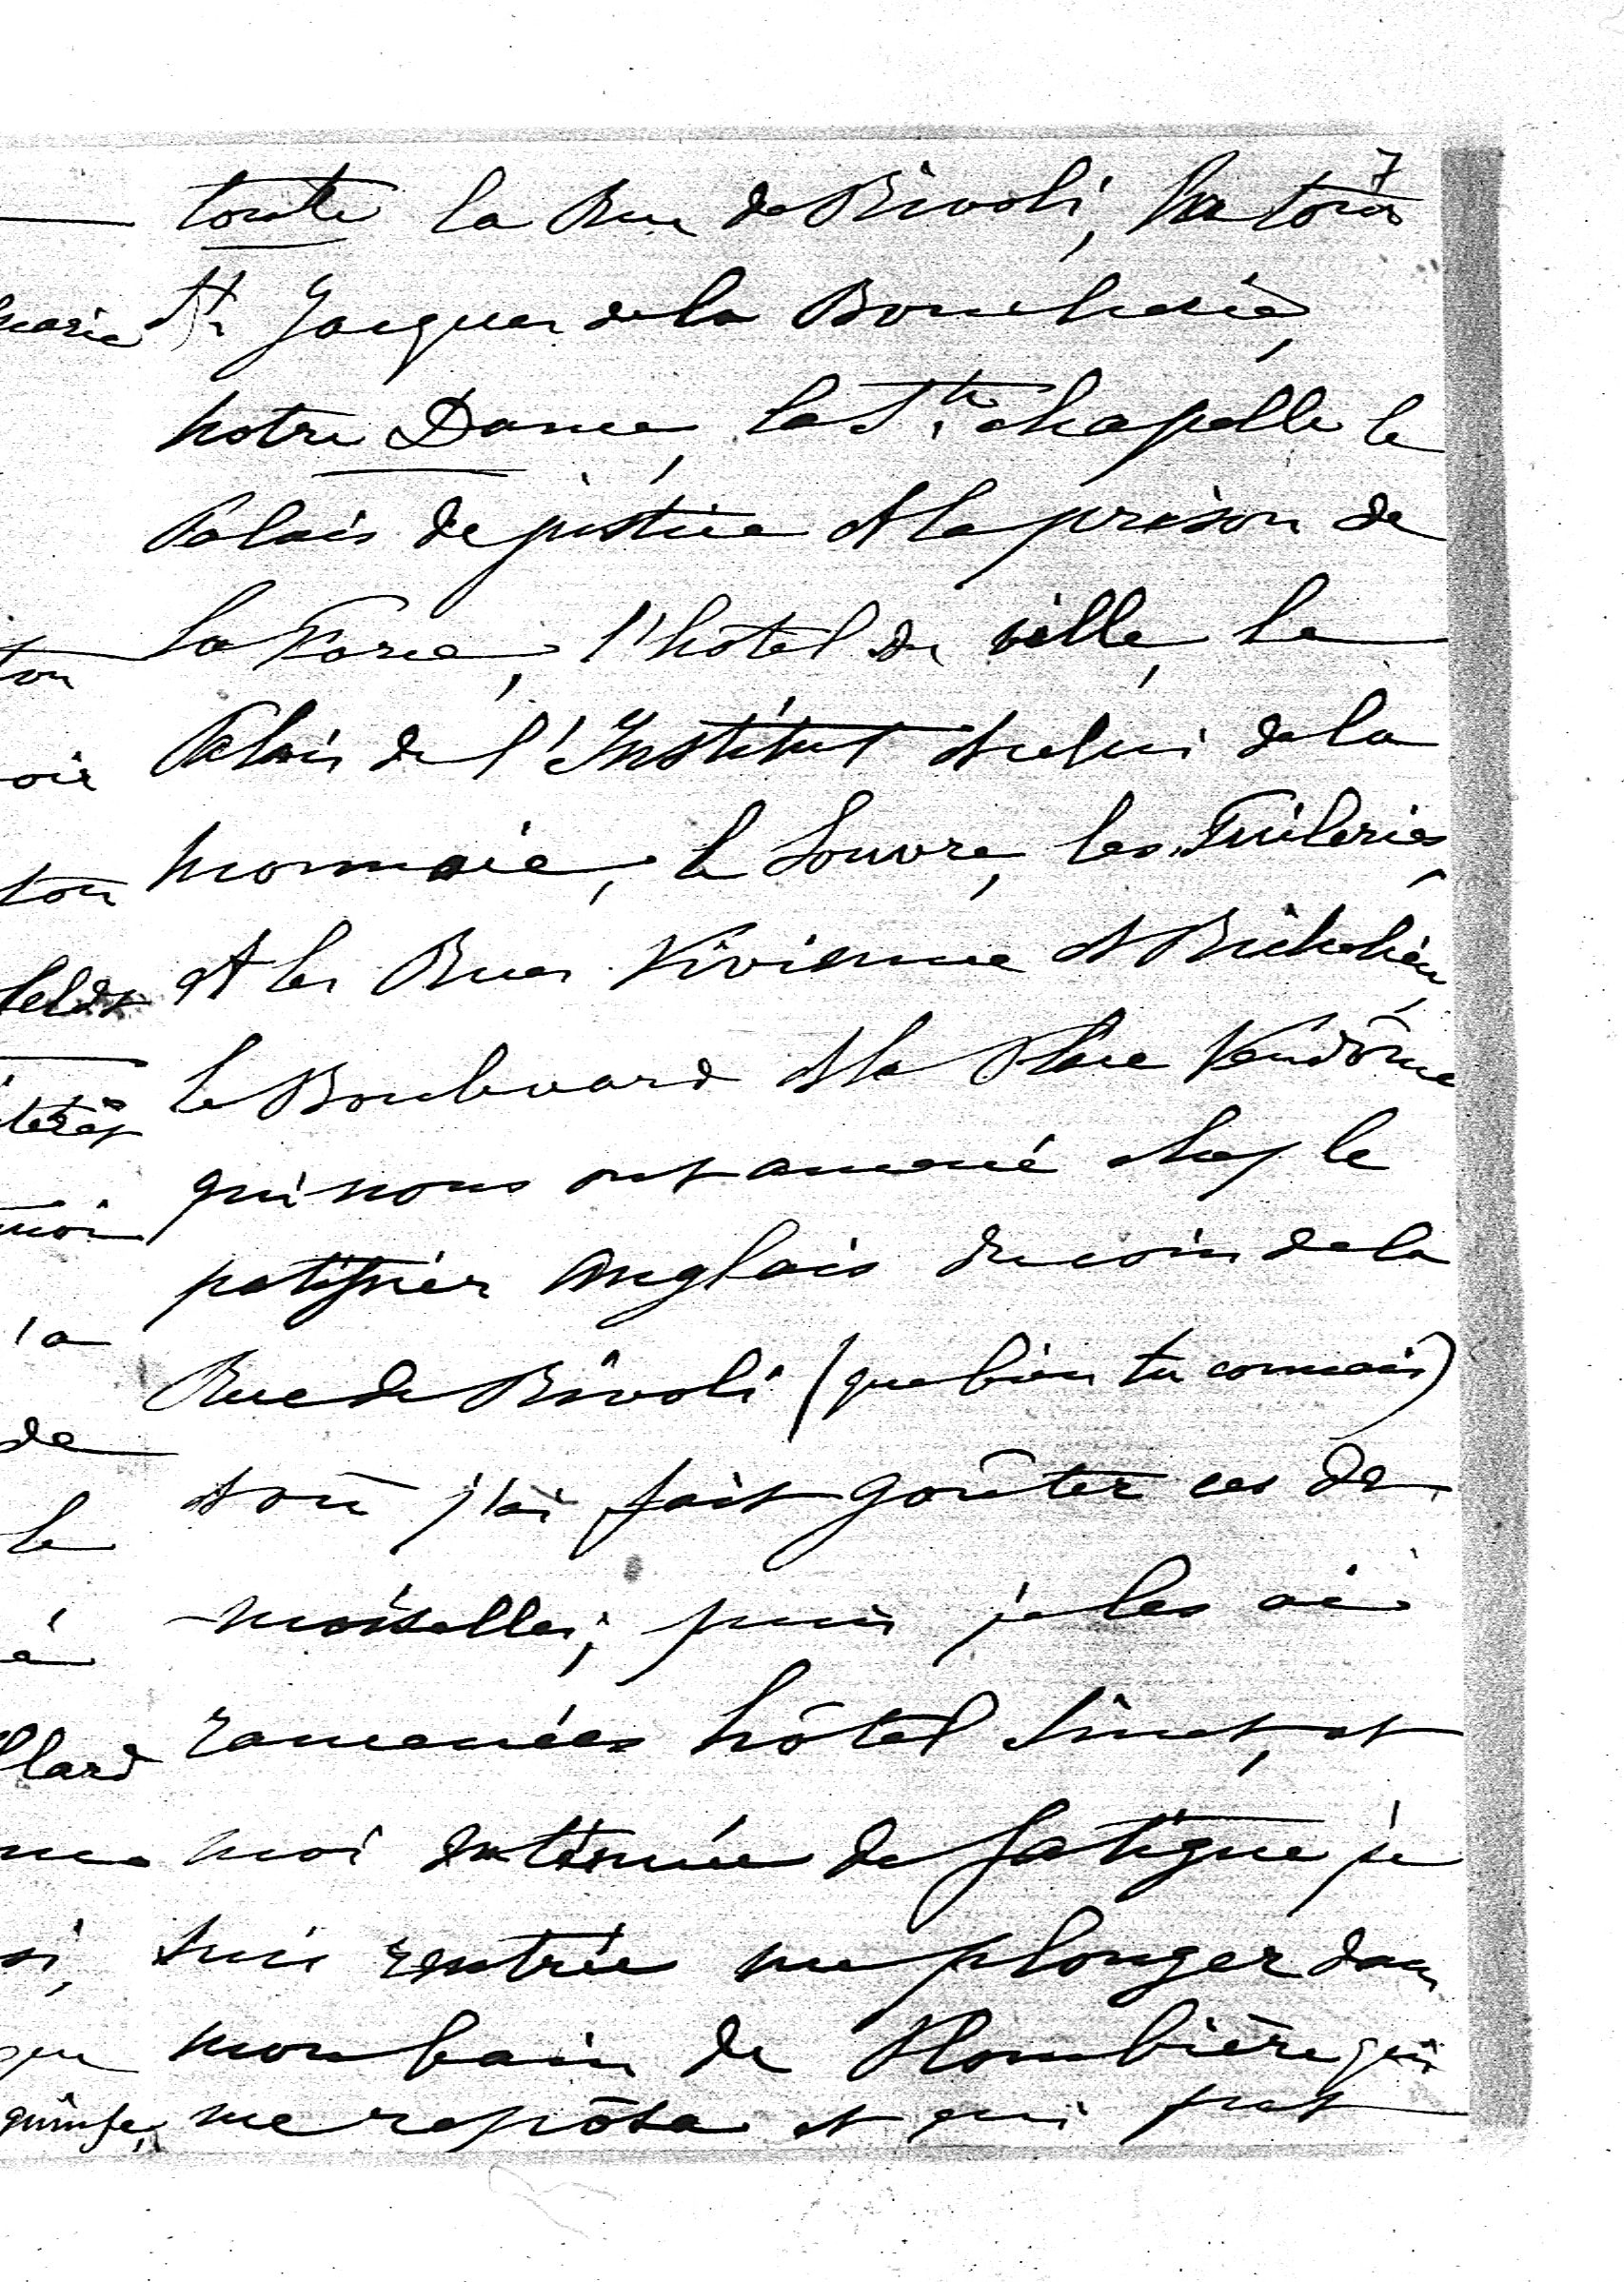 7
toute la Rue de Rivoli, la tour
St Jacques de la Boucherie,
notre Dame, la Ste chapelle le
Palais de justice et la prison de
la Force, l'hôtel de ville, le
Palais de l'Institut et celui de la
monnaie, le Louvre, les Tuileries,
et les Rues Vivienne et Richelieu,
le Boulevard et la Place Vendôme
qui nous ont amené chez le
patissier anglais du coin de la
Rue de Rivoli (que bien tu connais)
et où j'ai fait goûter ces de
-moiselles; puis je les ai
ramenées hôtel et
moi exténuée de fatigue je
suis rentrée me plonger dans
mon bain de Plombière qui
me reposa et qui fut